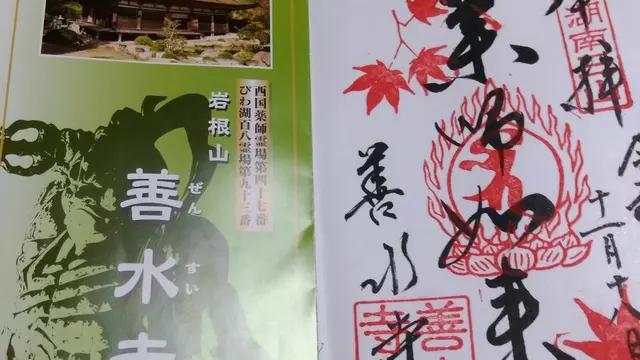 西国薬師霊場第四十七番
びわ湖百八霊場第九十三番
岩根山
善水寺
ぜん
すい
奉拝
湖南
十一月十九
薬師如来
善水寺
善
寺